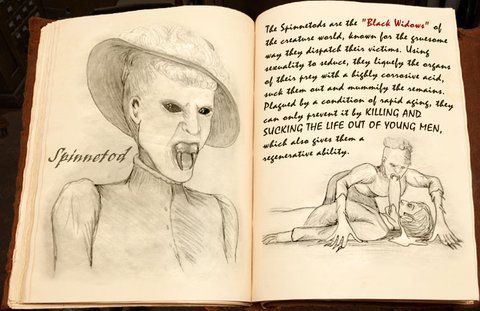 Spinnetod
The Spinnetods are the "Black Widows" of
the creature world, known for the gruesome
way they dispatch their victims. Using
sexuality to seduce, they liquefy the organs
of their prey with a highly corrosive acid,
suck them out and mummify the remains.
Plagued by a condition of rapid aging, they
can only prevent it by KILLING AND
SUCKING THE LIFE OUT OF YOUNG MEN,
which also gives them a
regenerative ability.